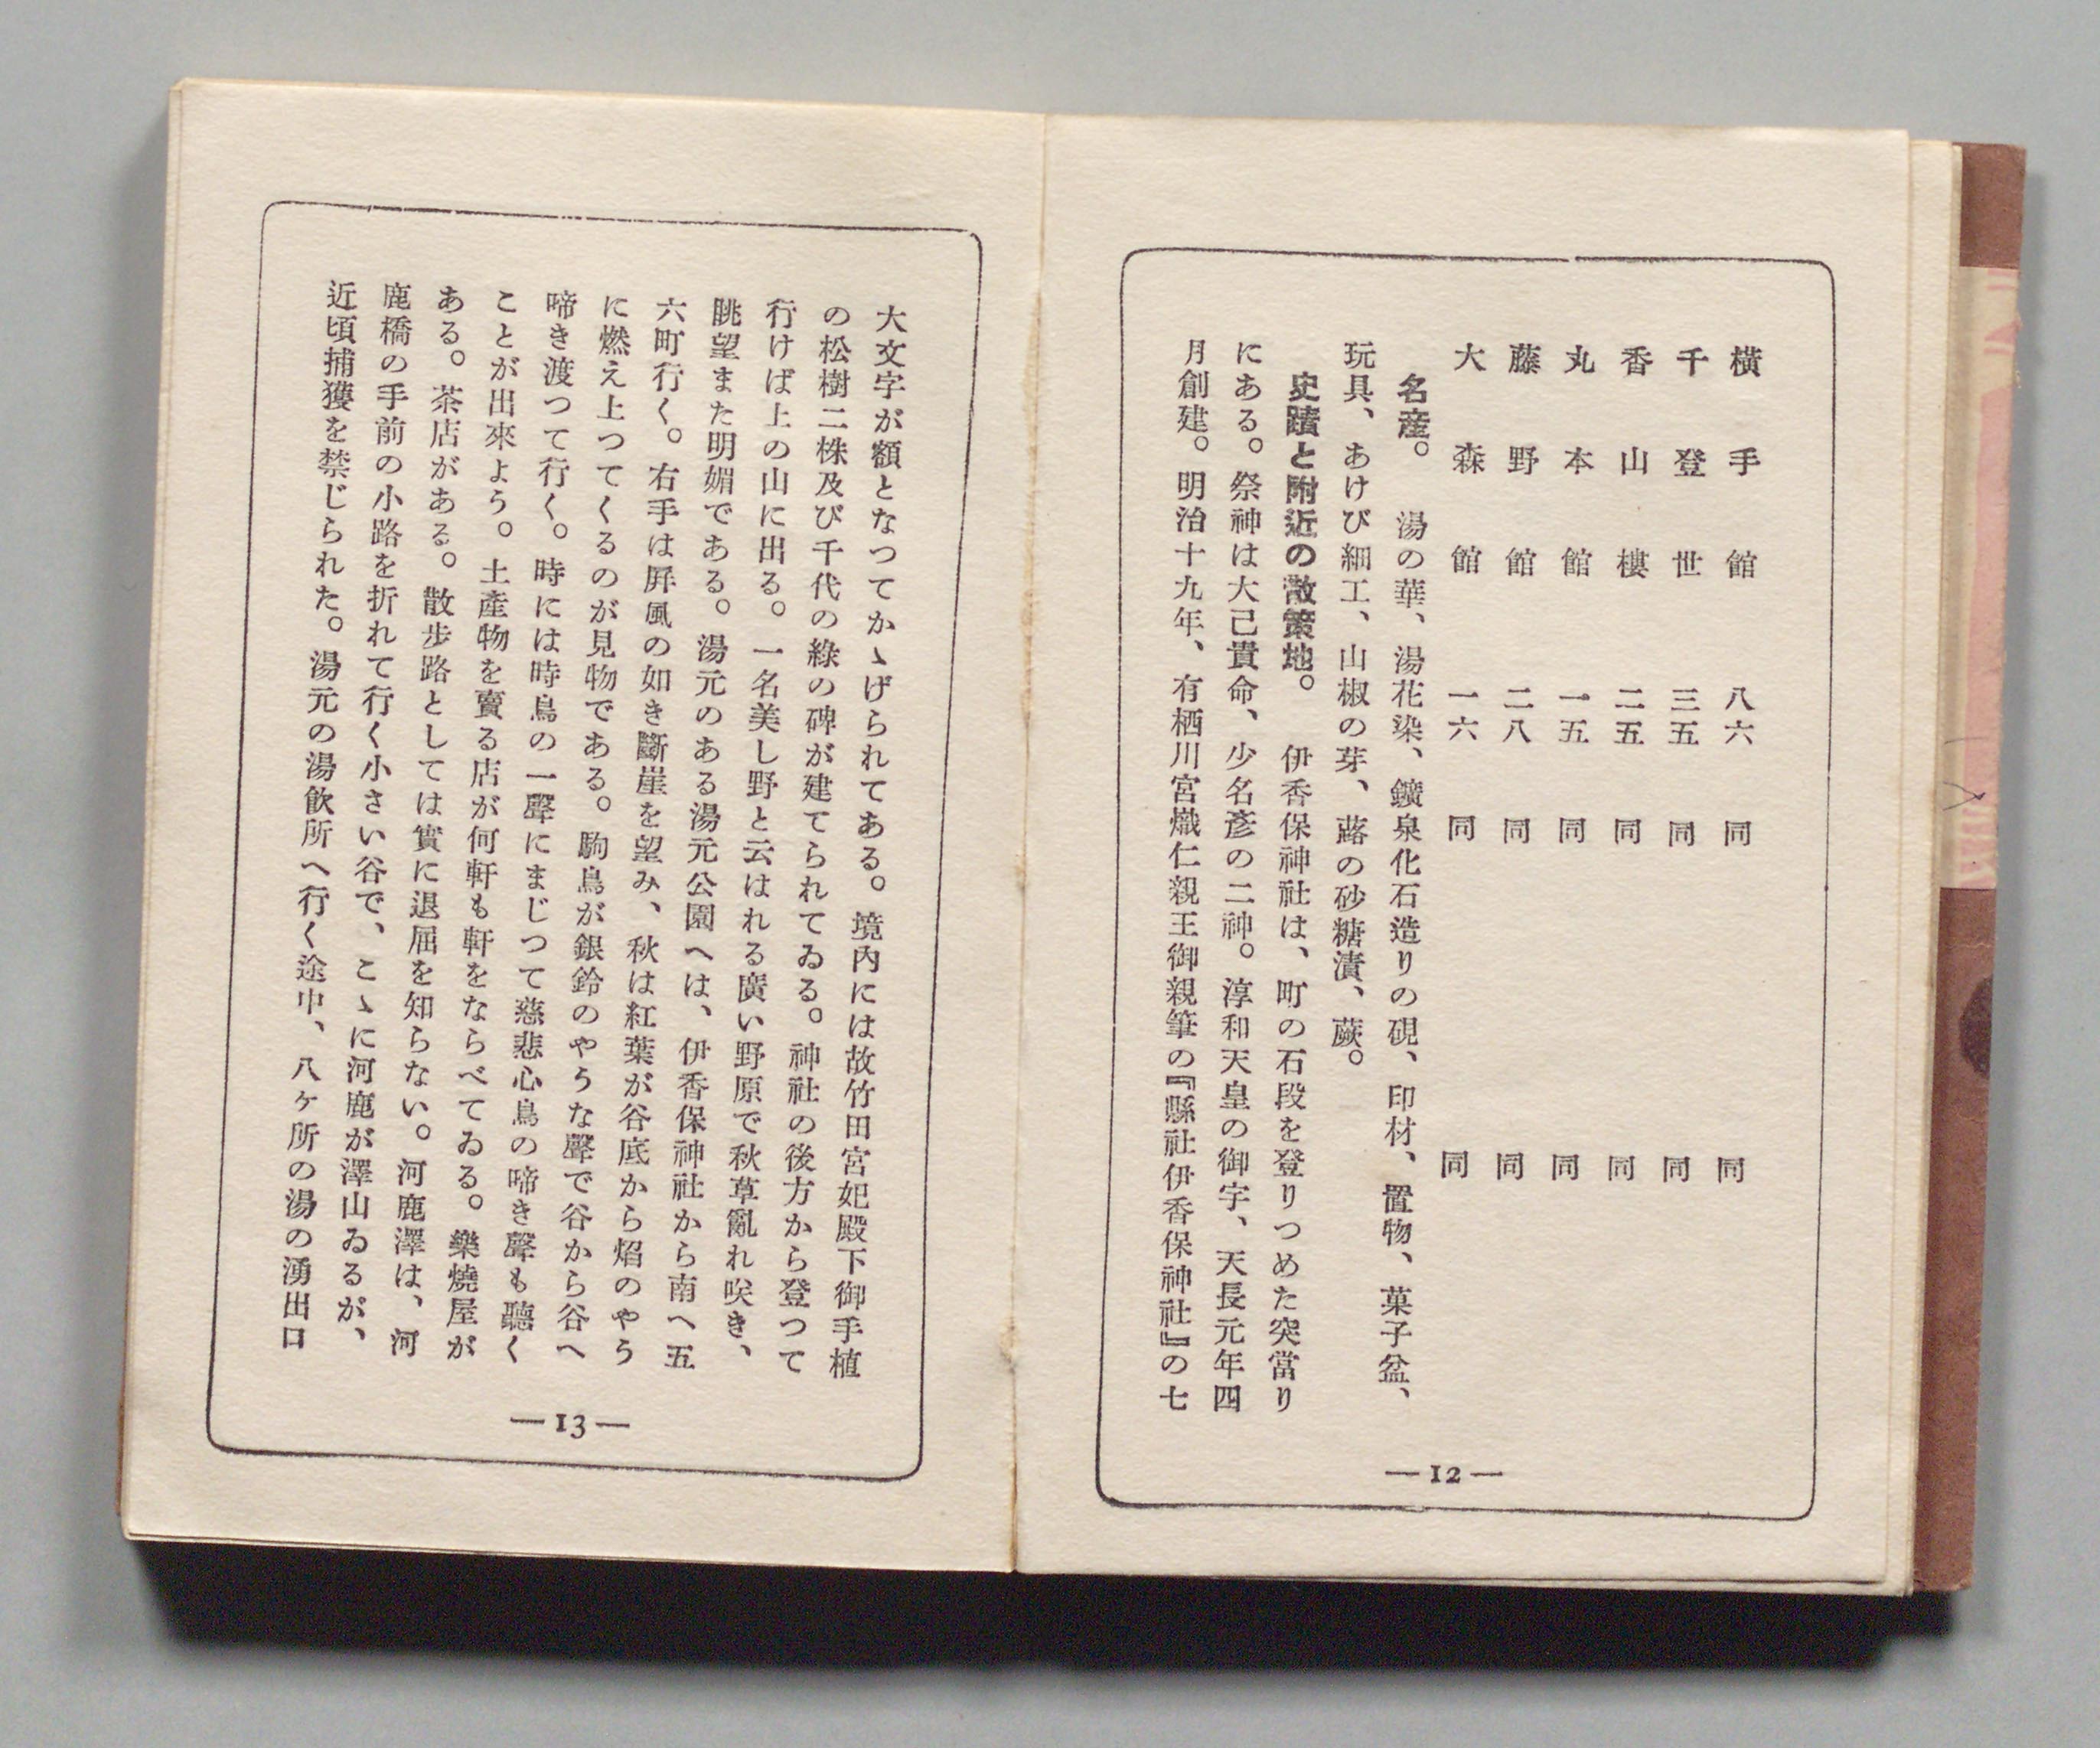 横手館 八六 同 同
千登世 三五 同 同
香山樓 二五 同 同
丸本館 一五 同 同
藤野館 二八 同 同
大森館 一六 同 同
名産。 湯の華、湯花染、鑛泉化石造りの硯、印材、置物、菓子盆、
玩具、あけび細工、山椒の芽、蕗の砂糖漬、蕨。
史蹟と附近の散策地。 伊香保神社は、町の石段を登りつめた突當り
にある。祭神は大己貴命、少名彥の二神。淳和天皇の御宇、天長元年四
月創建。明治十九年、有栖川宮熾仁親王御親筆の『縣社伊香保神社』の七
—12—
大文字が額となつてかゝげられてある。境內には故竹田宮妃殿下御手植
の松樹二株及び千代の綠の碑が建てられてゐる。神社の後方から登つて
行けば上の山に出る。一名美し野と云はれる廣い野原で秋草亂れ咲き、
眺望また明媚である。湯元のある湯元公園へは、伊香保神社から南へ五
六町行く。右手は屛風の如き斷崖を望み、秋は紅葉が谷底から焰のやう
に燃え上つてくるのが見物である。駒鳥が銀鈴のやうな聲で谷から谷へ
啼き渡つて行く。時には時鳥の一聲にまじつて慈悲心鳥の啼き聲も聽く
ことが出來よう。土產物を賣る店が何軒も軒をならべてゐる。樂燒屋が
ある。茶店がある。散步路としては實に退屈を知らない。河鹿澤は、河
鹿橋の手前の小路を折れて行く小さい谷で、こゝに河鹿が澤山ゐるが、
近頃捕獲を禁じられた。湯元の湯飮所へ行く途中、八ヶ所の湯の湧出口
—13—